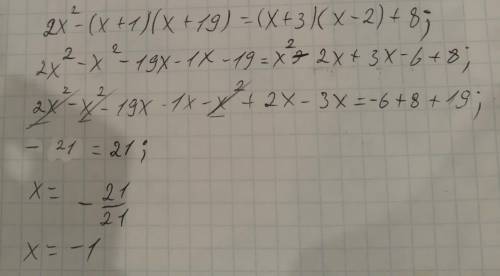 2x² - (x+1)(x+19) = (x+3)(x-2) + 8;
2x² - x² - 19x - 1x - 19 = x² - 2x + 3x - 6 + 8;
2x² - x² - 19x - 1x - x² + 2x - 3x = -6 + 8 + 19;
- 21 = 21;
x = - 21/21
x = -1